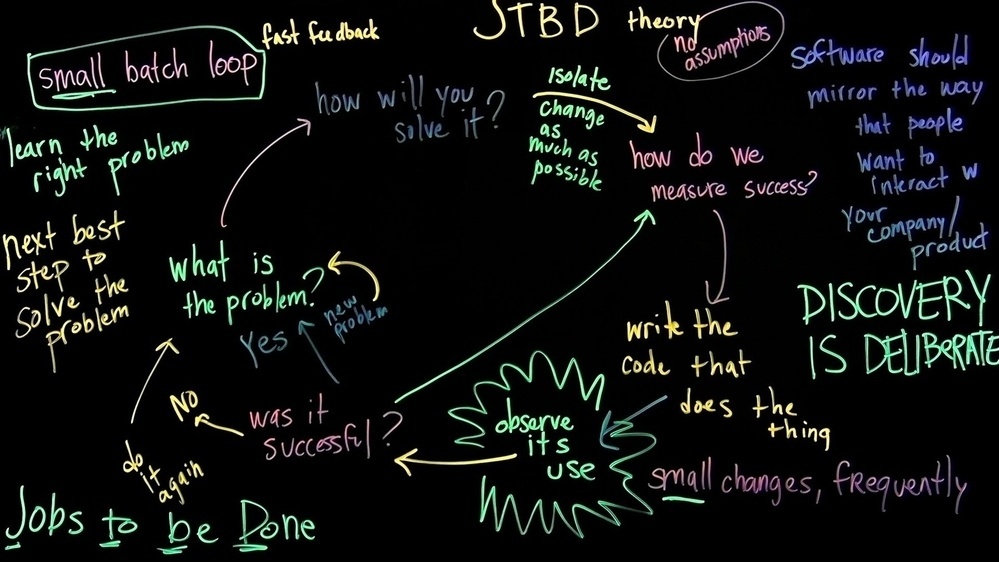 JTBD theory
no
assumptions
small batch loop
fast feedback
learn the
right problem
next best
step to
solve the
problem
how will you
solve it?
Isolate
change
as
much as
possible
how do we
measure success?
Software should
mirror the way
that people
want to
interact w
your
company/
product
DISCOVERY
IS DELIBERATE
What is
the problem?
new
problem
Yes
was it
successful?
No
do
it
again
write the
code that
does the
thing
observe
its
use
small changes, frequently
Jobs to be Done